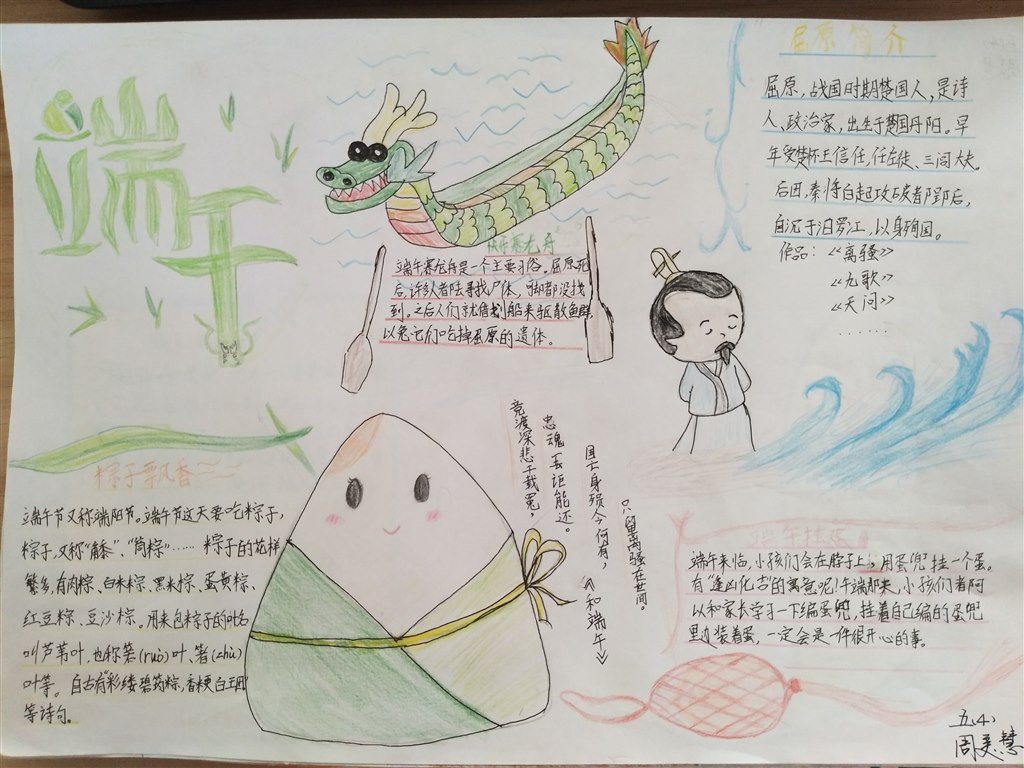 端午
端午赛龙舟
端午赛龙舟是一个主要习俗。屈原死
后,许多人者陆寻找尸体,啊都没找
到。之后人们就借划船来驱散鱼群
以免它们吃掉屈原的遗体。
屈原简介
屈原,战国时期楚国人,是诗
人、政治家,出生于楚国丹阳。早
年受楚怀王信任,任左徒、三闾大夫。
后因,秦将白起攻破者郢后,
自沉于汨罗江,以身殉国。
作品:《离骚》
《九歌》
《天问》
......
粽子飘香~~
端午节又称端阳节。端午节这天要吃粽子,
粽子,又称“角黍”、“筒粽”……粽子的花样
繁多,有肉粽、白米粽、黑米粽、蛋黄粽、
红豆粽、豆沙粽。用来包粽子的叶名
叫芦苇叶,也称箬(ruò)叶、箸(zhù)
叶等。自古有“彩缕碧筠粽,香粳白玉团”
等诗句。
竞渡深悲千载冤,
忠魂一去讵能还。
国亡身殒今何有,
只留离骚在世间。
《和端午》
端午挂蛋
端午来临,小孩们会在脖子上,用蛋兜挂一个蛋。
有“逢凶化吉”的寓意呢!午端那天,小孩们者阿
以和家长学习一下编蛋兜,挂着自己编的蛋兜
里边装着蛋,一定会是一件很开心的事。
五(4)
周美慧